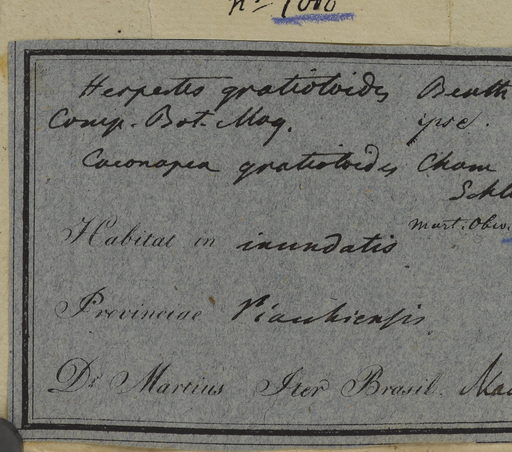 Herpestis gratioloides Benth
Comp. Bot. Mag. ipse.
Caconapea gratioloides Cham
Schl
Mart. Obs.
Habitat in inundatis
Provinciae Piauhiensis
Dr Martius Iter Brasil. Mai